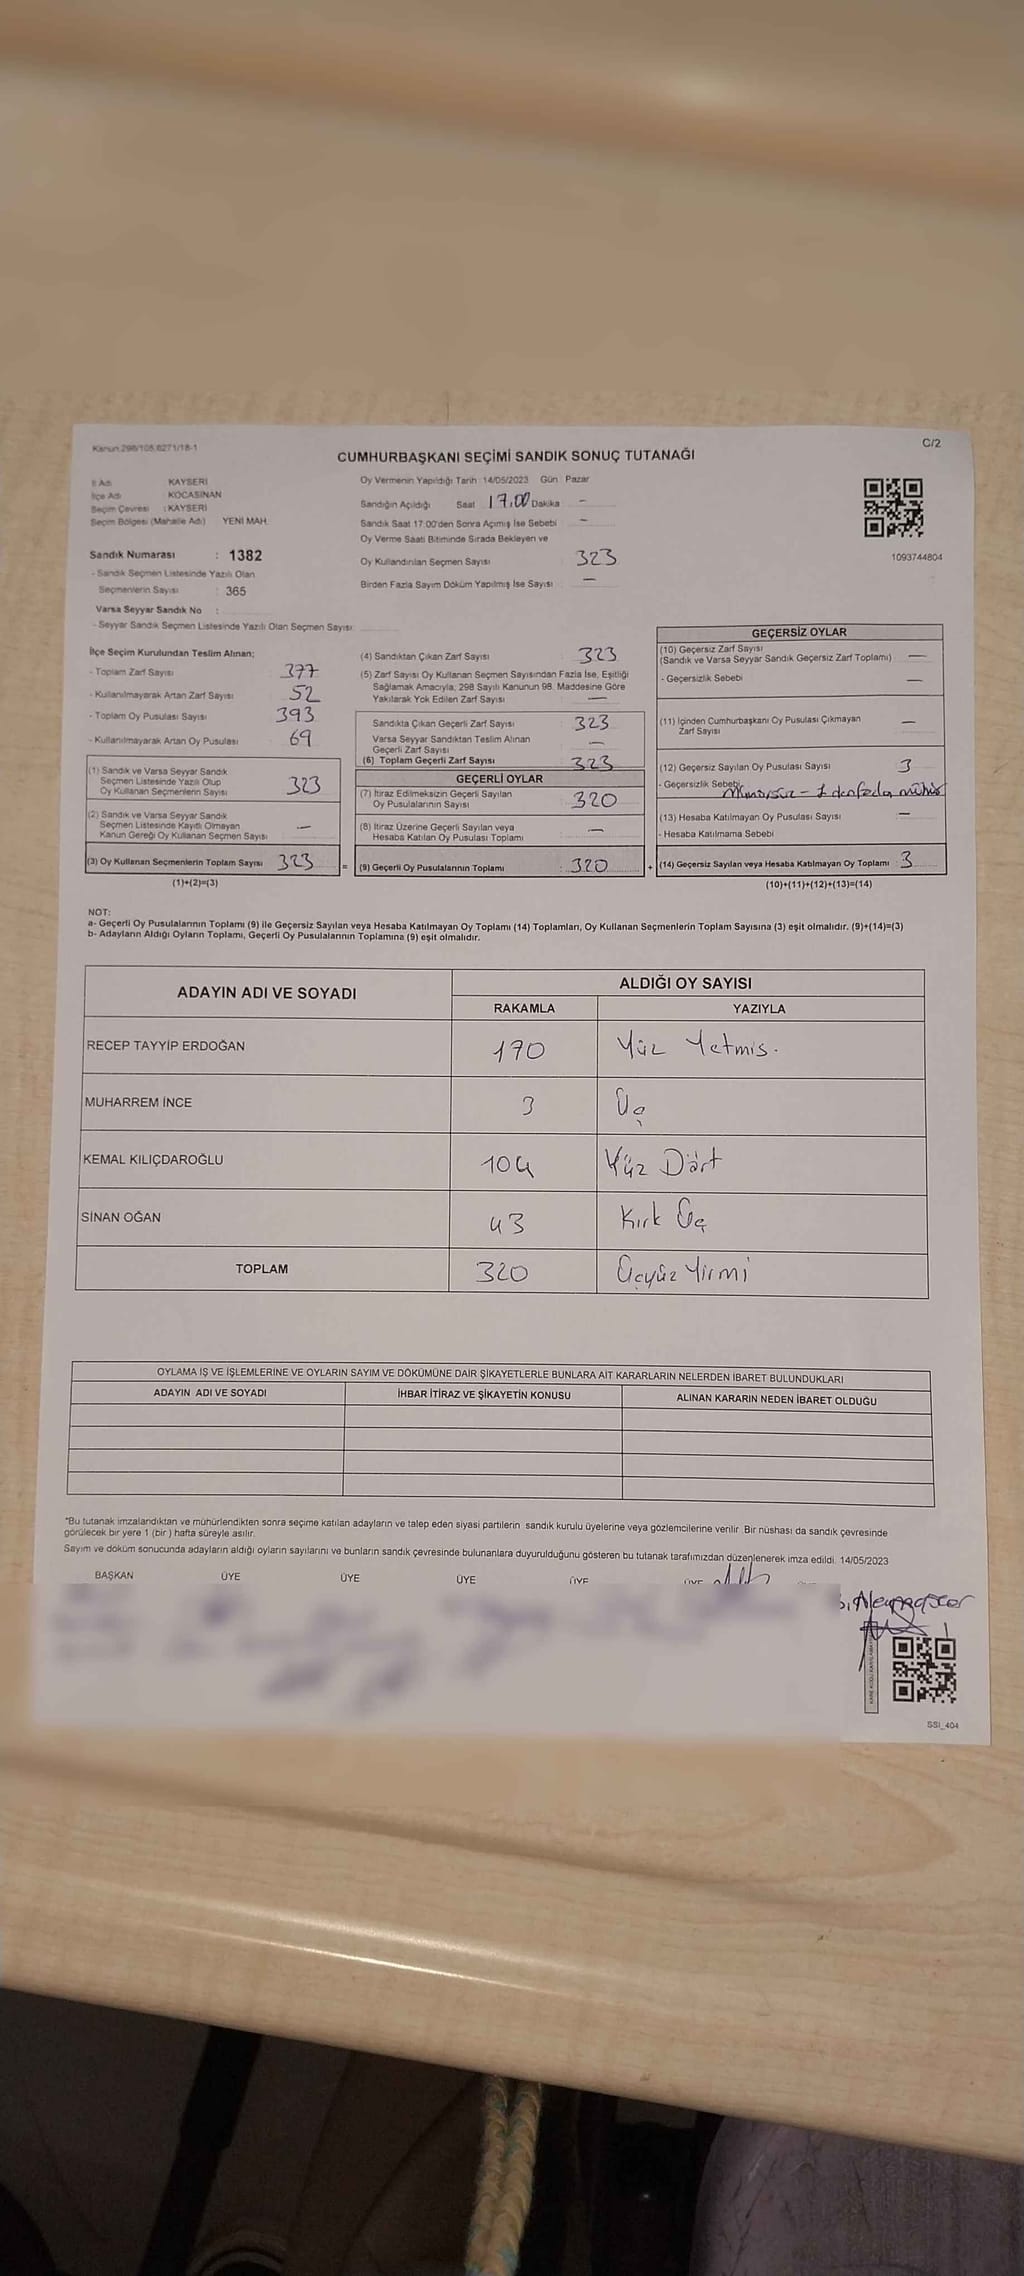 Kanun:298/105,6271/18-1
C/2
CUMHURBAŞKANI SEÇİMİ SANDIK SONUÇ TUTANAĞI
İl Adı KAYSERİ
İlçe Adı KOCASİNAN
Seçim Çevresi : KAYSERİ
Seçim Bölgesi (Mahalle Adı) YENİ MAH.
Sandık Numarası : 1382
- Sandık Seçmen Listesinde Yazılı Olan
Seçmenlerin Sayısı : 365
Varsa Seyyar Sandık No :
- Seyyar Sandık Seçmen Listesinde Yazılı Olan Seçmen Sayısı:
Oy Vermenin Yapıldığı Tarih :14/05/2023 Gün : Pazar
Sandığın Açıldığı Saat 17.00 Dakika -
Sandık Saat 17:00'den Sonra Açılmış İse Sebebi -
Oy Verme Saati Bitiminde Sırada Bekleyen ve
Oy Kullandırılan Seçmen Sayısı 323
Birden Fazla Sayım Döküm Yapılmış İse Sayısı —
1093744804
İlçe Seçim Kurulundan Teslim Alınan;
- Toplam Zarf Sayısı 377
- Kullanılmayarak Artan Zarf Sayısı 52
- Toplam Oy Pusulası Sayısı 393
- Kullanılmayarak Artan Oy Pusulası 69
(1) Sandık ve Varsa Seyyar Sandık
Seçmen Listesinde Yazılı Olup
Oy Kullanan Seçmenlerin Sayısı 323
(2) Sandık ve Varsa Seyyar Sandık
Seçmen Listesinde Kayıtlı Olmayan
Kanun Gereği Oy Kullanan Seçmen Sayısı —
(3) Oy Kullanan Seçmenlerin Toplam Sayısı 323 =
(1)+(2)=(3)
(4) Sandıktan Çıkan Zarf Sayısı : 323
(5) Zarf Sayısı Oy Kullanan Seçmen Sayısından Fazla İse, Eşitliği
Sağlamak Amacıyla, 298 Sayılı Kanunun 98. Maddesine Göre
Yakılarak Yok Edilen Zarf Sayısı : —
Sandıkta Çıkan Geçerli Zarf Sayısı : 323
Varsa Seyyar Sandıktan Teslim Alınan
Geçerli Zarf Sayısı —
(6) Toplam Geçerli Zarf Sayısı : 323
GEÇERLİ OYLAR
(7) İtiraz Edilmeksizin Geçerli Sayılan
Oy Pusulalarının Sayısı 320
(8) İtiraz Üzerine Geçerli Sayılan veya
Hesaba Katılan Oy Pusulası Toplamı —
(9) Geçerli Oy Pusulalarının Toplamı : 320 +
GEÇERSİZ OYLAR
(10) Geçersiz Zarf Sayısı
(Sandık ve Varsa Seyyar Sandık Geçersiz Zarf Toplamı) —
- Geçersizlik Sebebi —
(11) İçinden Cumhurbaşkanı Oy Pusulası Çıkmayan
Zarf Sayısı —
(12) Geçersiz Sayılan Oy Pusulası Sayısı 3
- Geçersizlik Sebebi
(13) Hesaba Katılmayan Oy Pusulası Sayısı —
- Hesaba Katılmama Sebebi
(14) Geçersiz Sayılan veya Hesaba Katılmayan Oy Toplamı : 3
(10)+(11)+(12)+(13)=(14)
NOT:
a- Geçerli Oy Pusulalarının Toplamı (9) ile Geçersiz Sayılan veya Hesaba Katılmayan Oy Toplamı (14) Toplamları, Oy Kullanan Seçmenlerin Toplam Sayısına (3) eşit olmalıdır. (9)+(14)=(3)
b- Adayların Aldığı Oyların Toplamı, Geçerli Oy Pusulalarının Toplamına (9) eşit olmalıdır.
ADAYIN ADI VE SOYADI ALDIĞI OY SAYISI
RAKAMLA YAZIYLA
RECEP TAYYİP ERDOĞAN 170 Yüz Yetmiş.
MUHARREM İNCE 3 Üç
KEMAL KILIÇDAROĞLU 104 Yüz Dört
SİNAN OĞAN 43 Kırk Üç
TOPLAM 320 Üçyüz Yirmi
OYLAMA İŞ VE İŞLEMLERİNE VE OYLARIN SAYIM VE DÖKÜMÜNE DAİR ŞİKAYETLERLE BUNLARA AİT KARARLARIN NELERDEN İBARET BULUNDUKLARI
ADAYIN ADI VE SOYADI İHBAR İTİRAZ VE ŞİKAYETİN KONUSU ALINAN KARARIN NEDEN İBARET OLDUĞU
"Bu tutanak imzalandıktan ve mühürlendikten sonra seçime katılan adayların ve talep eden siyasi partilerin sandık kurulu üyelerine veya gözlemcilerine verilir. Bir nüshası da sandık çevresinde
görülecek bir yere 1 (bir ) hafta süreyle asılır.
Sayım ve döküm sonucunda adayların aldığı oyların sayılarını ve bunların sandık çevresinde bulunanlara duyurulduğunu gösteren bu tutanak tarafımızdan düzenlenerek imza edildi. 14/05/2023
BAŞKAN ÜYE ÜYE ÜYE ÜYE ÜYE
SSI_404